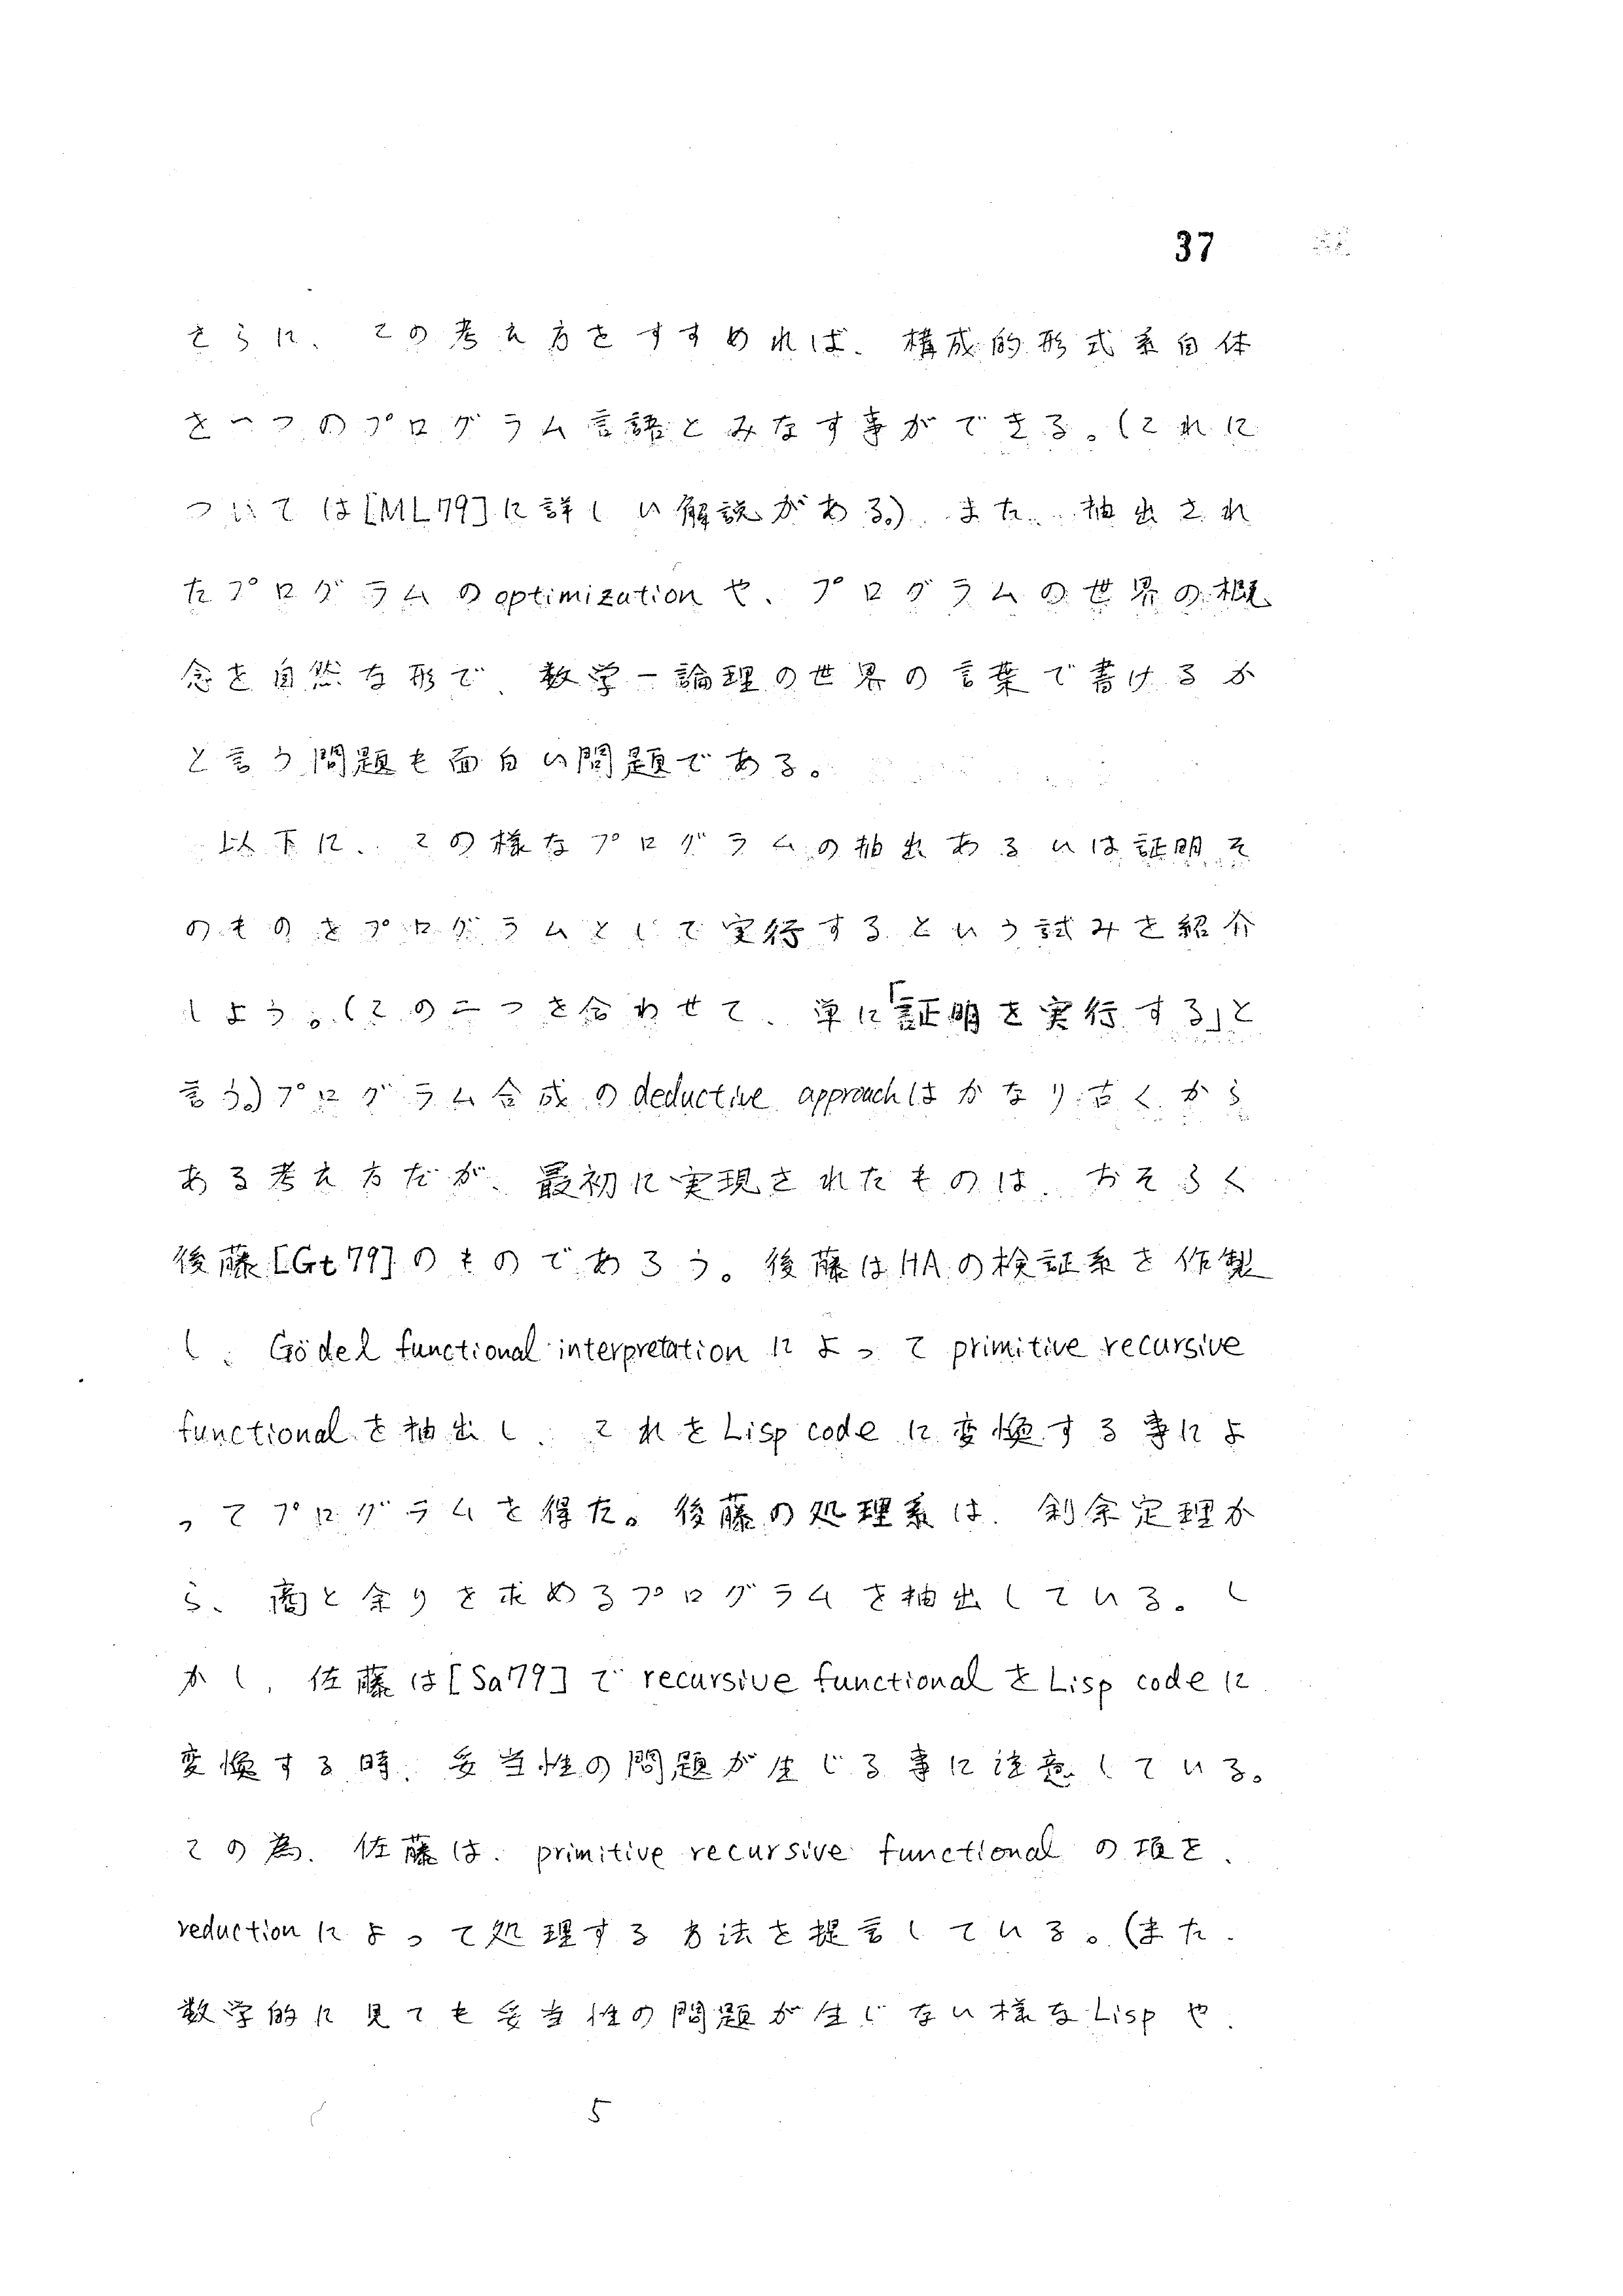 37
さらに、この考え方をすすめれば、構成的形式系自体
を一つのプログラム言語とみなす事ができる。(これに
ついては[ML79]に詳しい解説がある。) また、抽出され
たプログラムのoptimizationや、プログラムの世界の概
念を自然な形で、数学－論理の世界の言葉で書けるか
と言う問題も面白い問題である。
以下に、この様なプログラムの抽出あるいは証明そ
のものをプログラムとして実行するという試みを紹介
しよう。(この二つを合わせて、単に「証明を実行する」と
言う。)プログラム合成のdeductive approachはかなり古くから
ある考え方だが、最初に実現されたものは、おそらく
後藤[Gt79]のものであろう。後藤はHAの検証系を作製
し、Gödel functional interpretationによってprimitive recursive
functionalを抽出し、これをLisp codeに変換する事によ
ってプログラムを得た。後藤の処理系は、剰余定理か
ら、商と余りを求めるプログラムを抽出している。し
かし、佐藤は[Sa79]でrecursive functionalをLisp codeに
変換する時、妥当性の問題が生じる事に注意している。
この為、佐藤は、primitive recursive functionalの項を、
reductionによって処理する方法を提言している。(また、
数学的に見ても妥当性の問題が生じない様なLispや、
5